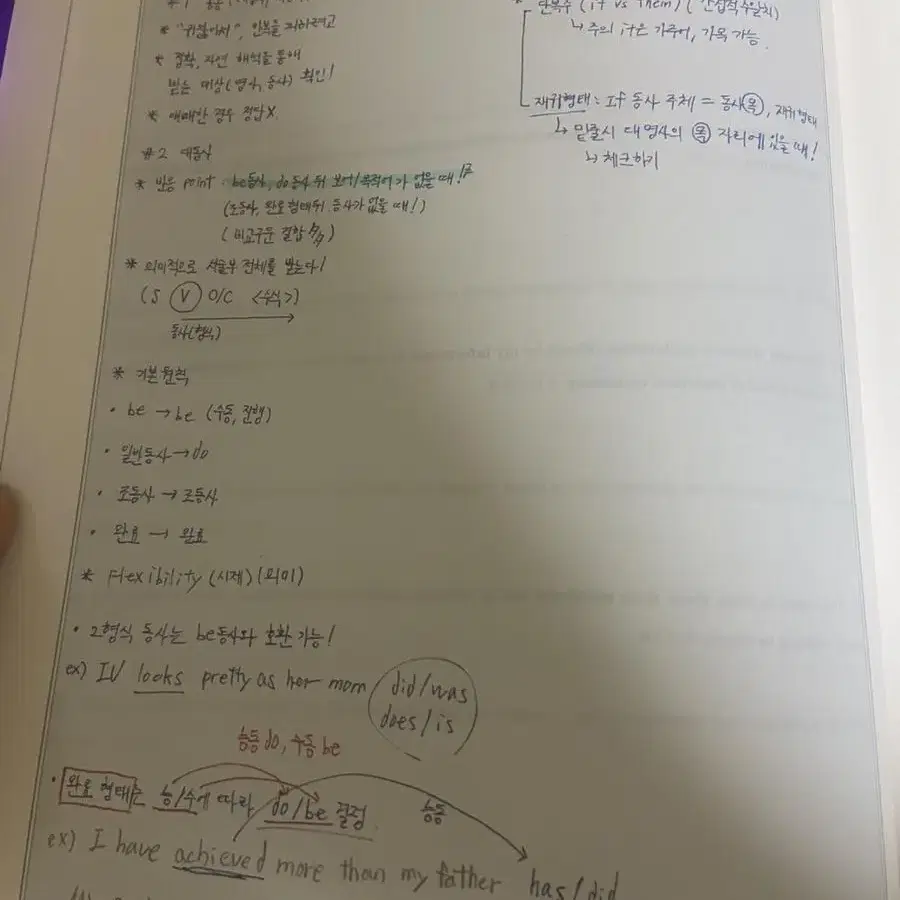 * "귀찮아서", 반복을 피하려고
* 정확, 자연 해석을 통해
받는 대상(명사, 동사) 확인!
* 애매한 경우 정답X.
#2 대동사
* 반응 point : be동사, do동사 뒤 보어/목적어가 없을 때!
(조동사, 완료 형태 뒤 동사가 없을 때!)
(비교구문 결합)
* 의미적으로 서술부 전체를 받는다!
(S V O/C <수식>)
동사(형식)
* 기본원칙
• be → be (수동, 진행)
• 일반동사 → do
• 조동사 → 조동사
• 완료 → 완료
* Flexibility (시제) (의미)
• 2형식 동사는 be동사와 호환 가능!
ex) IU looks pretty as her mom did/was
does/is
능동 do, 수동 be
• 완료 형태는 능/수에 따라 do/be 결정
능동
ex) I have achieved more than my father has/did
* 단복수 (it vs them) (간접적 수일치)
↳ 주의 it은 가주어, 가목 가능.
재귀형태 : If 동사 주체 = 동사 목, 재귀형태
↳ 밑줄시 대명사의 목 자리에 있을 때!
↳ 체크하기